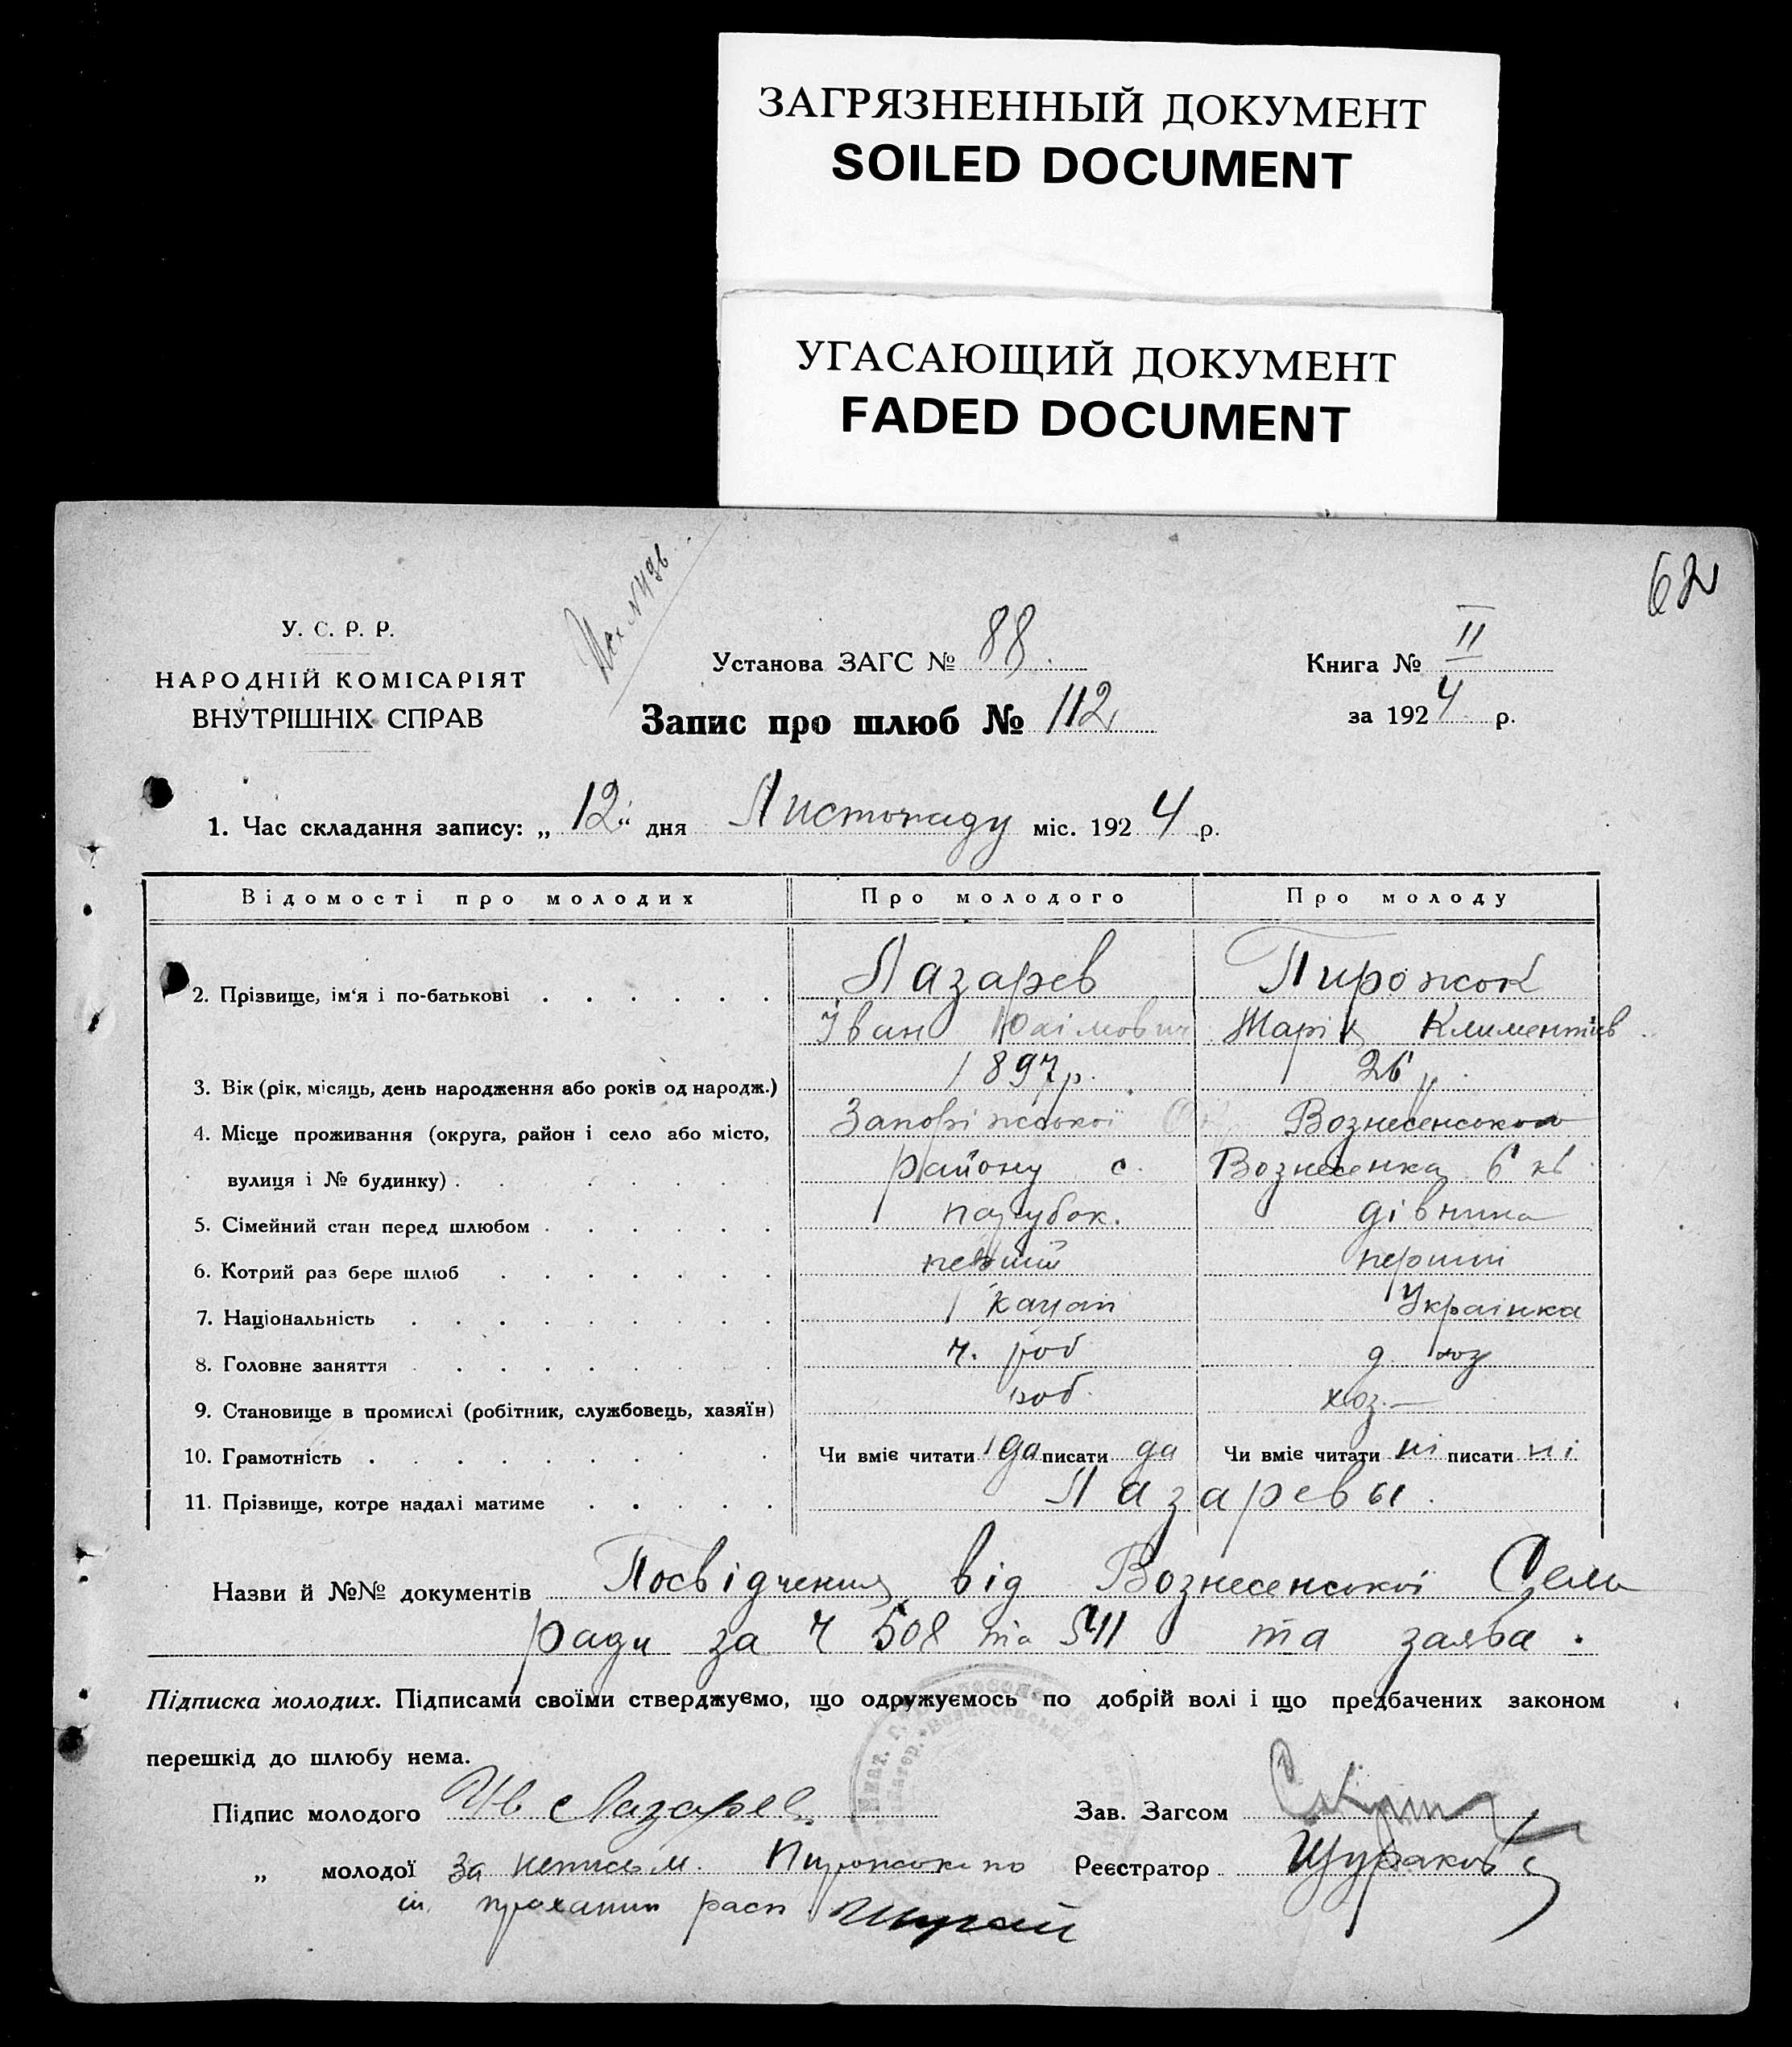 ЗАГРЯЗНЕННЫЙ ДОКУМЕНТ
SOILED DOCUMENT
УГАСАЮЩИЙ ДОКУМЕНТ
FADED DOCUMENT
62
У. С. Р. Р.
НАРОДНІЙ КОМІСАРІЯТ
ВНУТРІШНІХ СПРАВ
Установа ЗАГС № 88.
Запис про шлюб № 112
Книга № II
за 1924 р.
1. Час складання запису: „ 12 “ дня Листопаду міс. 1924 р.
Відомості про молодих Про молодого Про молоду
Лазарев Пирожок
2. Прізвище, ім'я і по-батькові
Іван Марія Климентіев
3. Вік (рік, місяць, день народження або років од народж.) 1897 р. 26 р.
4. Місце проживання (округа, район і село або місто, Запоріжської Вознесенского
вулиця і № будинку) району с. Вознесенка 6 кв
5. Сімейний стан перед шлюбом парубок. дівчина
6. Котрий раз бере шлюб перший перший
7. Національність кацап Українка
8. Головне заняття ч. роб д. хоз
9. Становище в промислі (робітник, службовець, хазяїн) роб. хоз.—
10. Грамотність Чи вміє читати да писати да Чи вміє читати ні писати ні
11. Прізвище, котре надалі матиме Лазаревы.
Назви й №№ документів Посвідчення від Вознесенської Сель
ради за ч 508 та 511 та заява.
Підписка молодих. Підписами своїми стверджуємо, що одружуємось по добрій волі і що предбачених законом
перешкід до шлюбу нема.
Підпис молодого Ив Лазарев Зав. Загсом
„ молодої За непись м. по Реєстратор
її проханню расп.